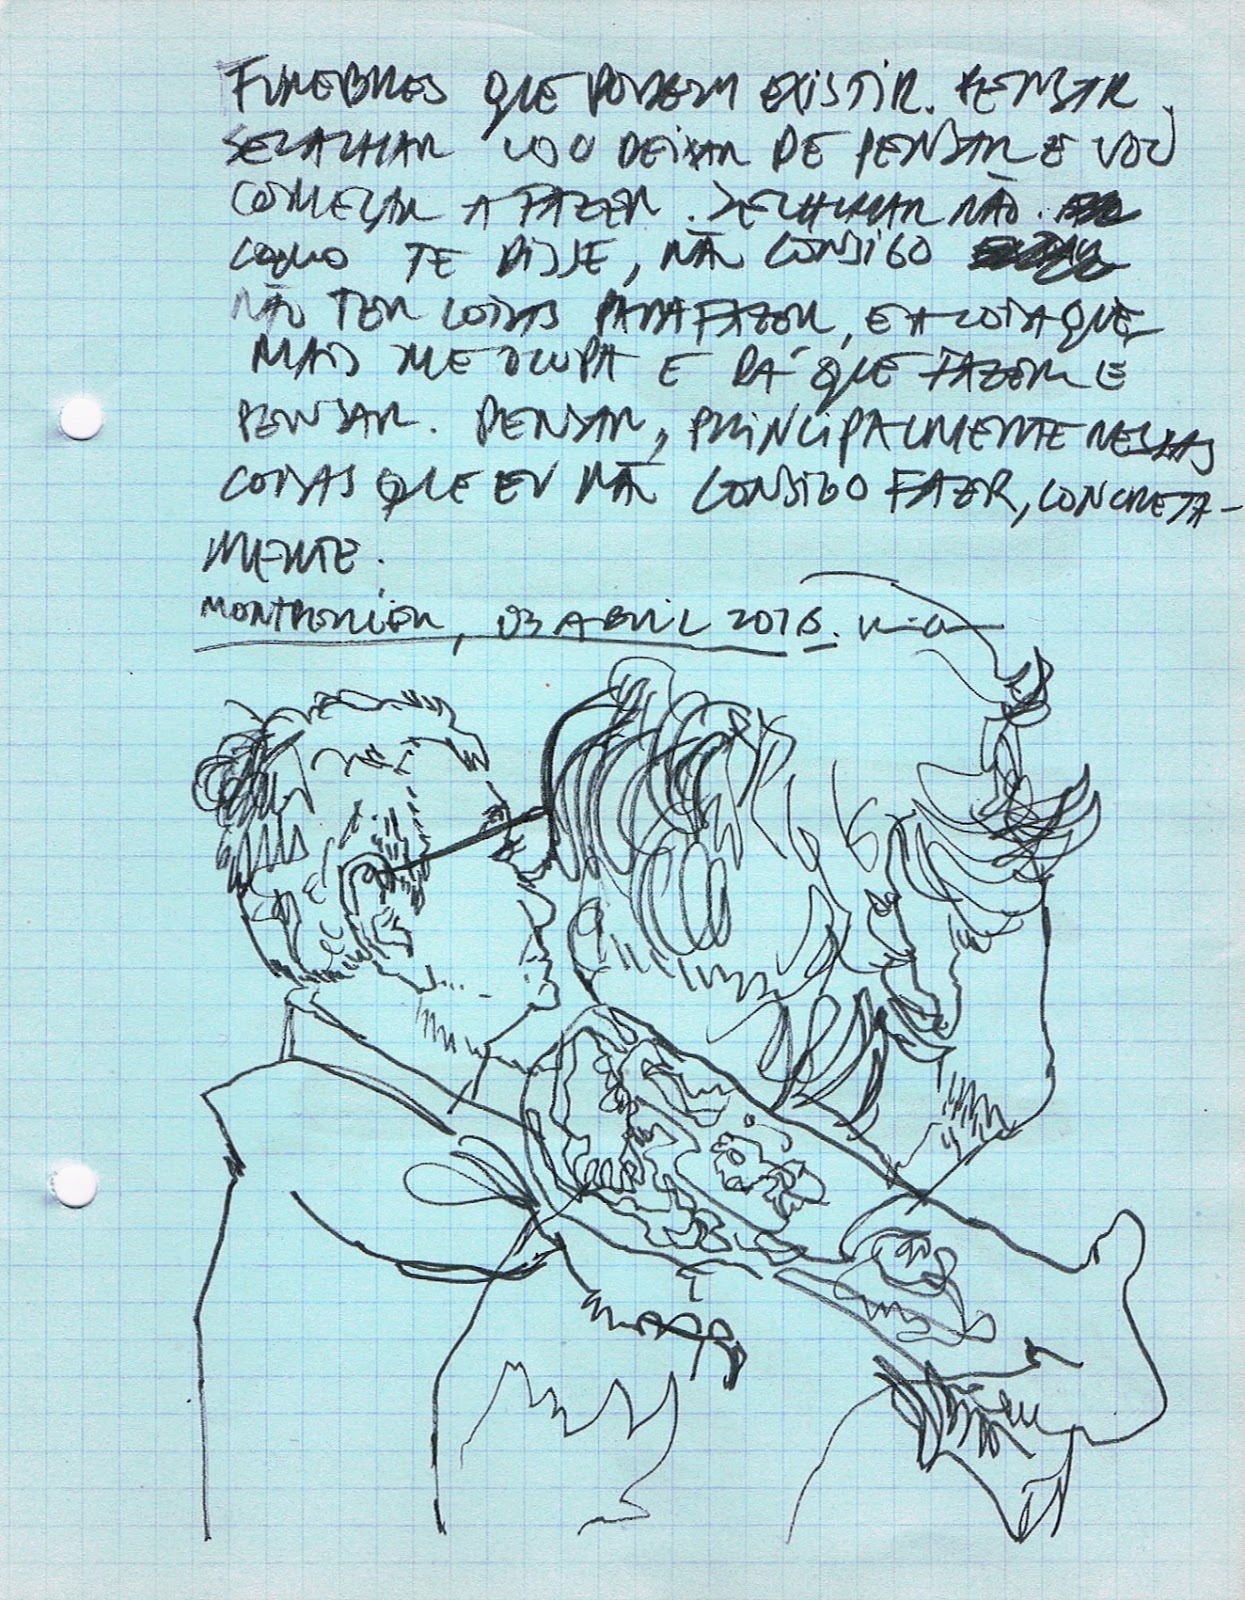 FUNEBRES QUE PODEM EXISTIR. PENSAR,
SECALHAR VOU DEIXAR DE PENSAR E VOU
COMEÇAR A FAZER. SECALHAR NÃO.
COMO TE DISSE, NÃO CONSIGO
NÃO TER COISAS PARA FAZER, E A COISA QUE
MAIS ME OCUPA E DÁ QUE FAZER E
PENSAR. PENSAR, PRINCIPALMENTE NESTAS
COISAS QUE EU NÃO CONSIGO FAZER, CONCRETA-
MENTE.
03 ABRIL